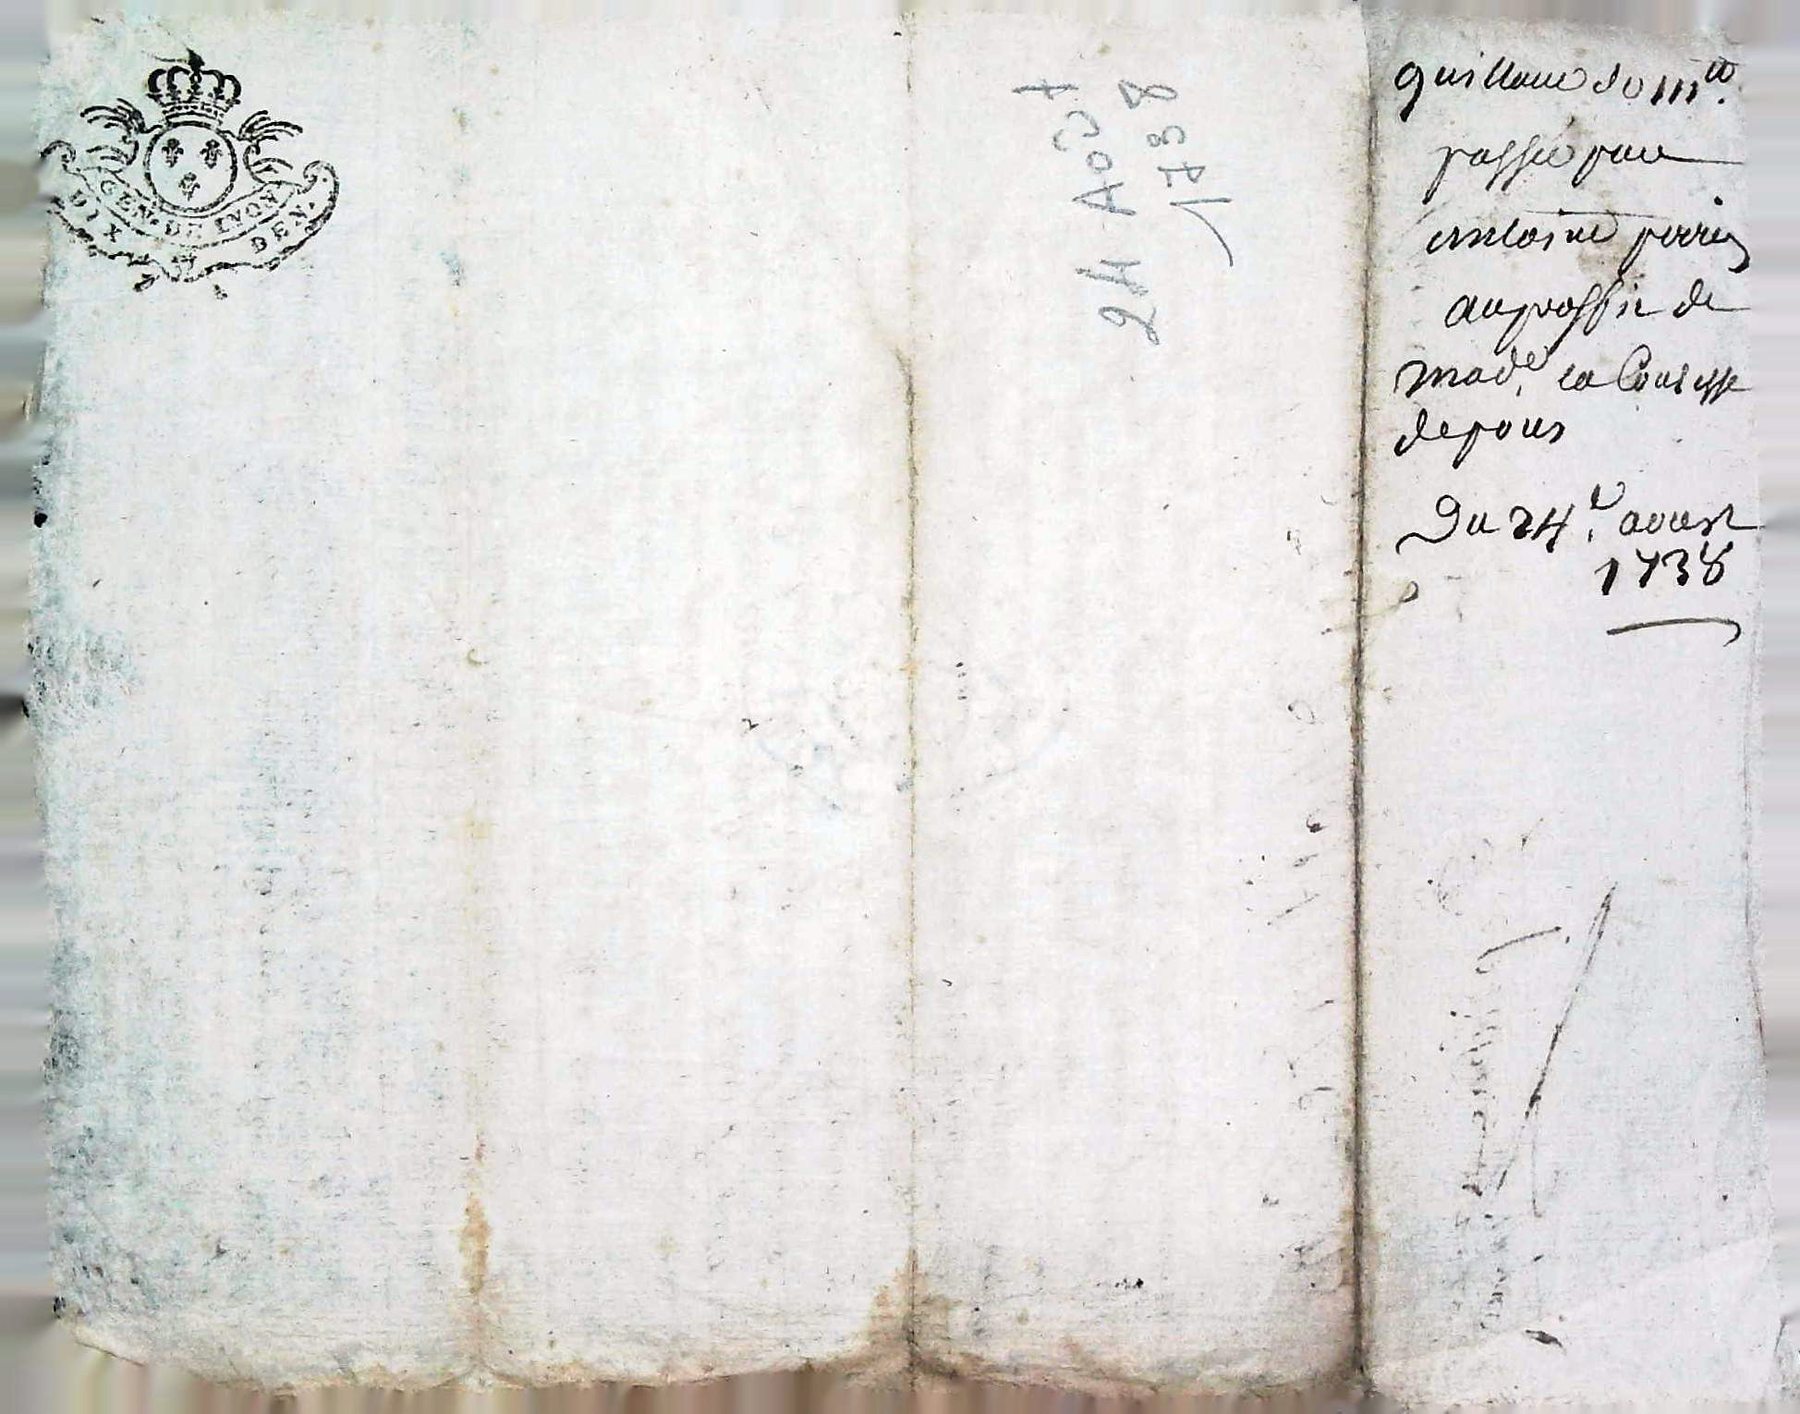 GEN. DE LYON
DIX DEN.
24 Août
1738
quittance de III ₶.
passée par
antoine perrin
au proffit de
made. la Contesse
de pons
Du 24e. aoust
1738